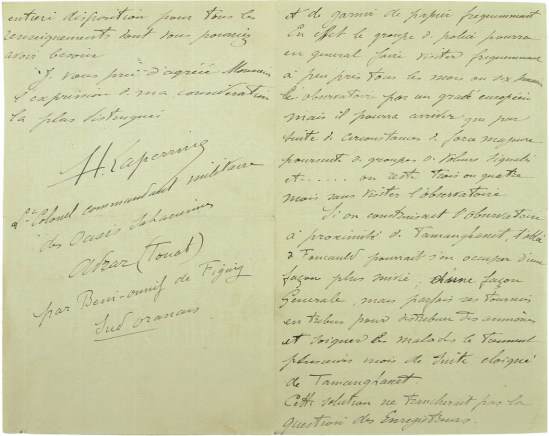 entière disposition pour tous les
renseignements dont vous pourriez
avoir besoin
Je vous prie d'agréer Monsieur
l'expression de ma considération
la plus distinguée
H. Laperrine
Lt Colonel commandant militaire
des Oasis Sahariennes
Adrar (Touat)
par Beni-ounif de Figuig
Sud oranais
et de garnir de papier frequemment
En effet le groupe de police pourra
en general faire visiter frequemment
à peu près tous les mois ou
l'observatoire par un gradé européen
mais il pourra arriver que par
suite de circonstances de force majeure
poursuite de groupes de voleurs signalés
et ..... on reste trois ou quatre
mois sans visiter l'observatoire
Si on construisait l'observatoire
à proximité de Tamanghasset, l'abbé
de Foucauld pourrait s'en occuper d'une
façon plus suivie, d'une façon
Generale, mais parfois ses tournées
en tribus pour distribuer des aumônes
et soigner des malades le tiennent
plusieurs mois de suite eloigné
de Tamanghasset
Cette solution ne trancherait pas la
question des Enregistreurs.